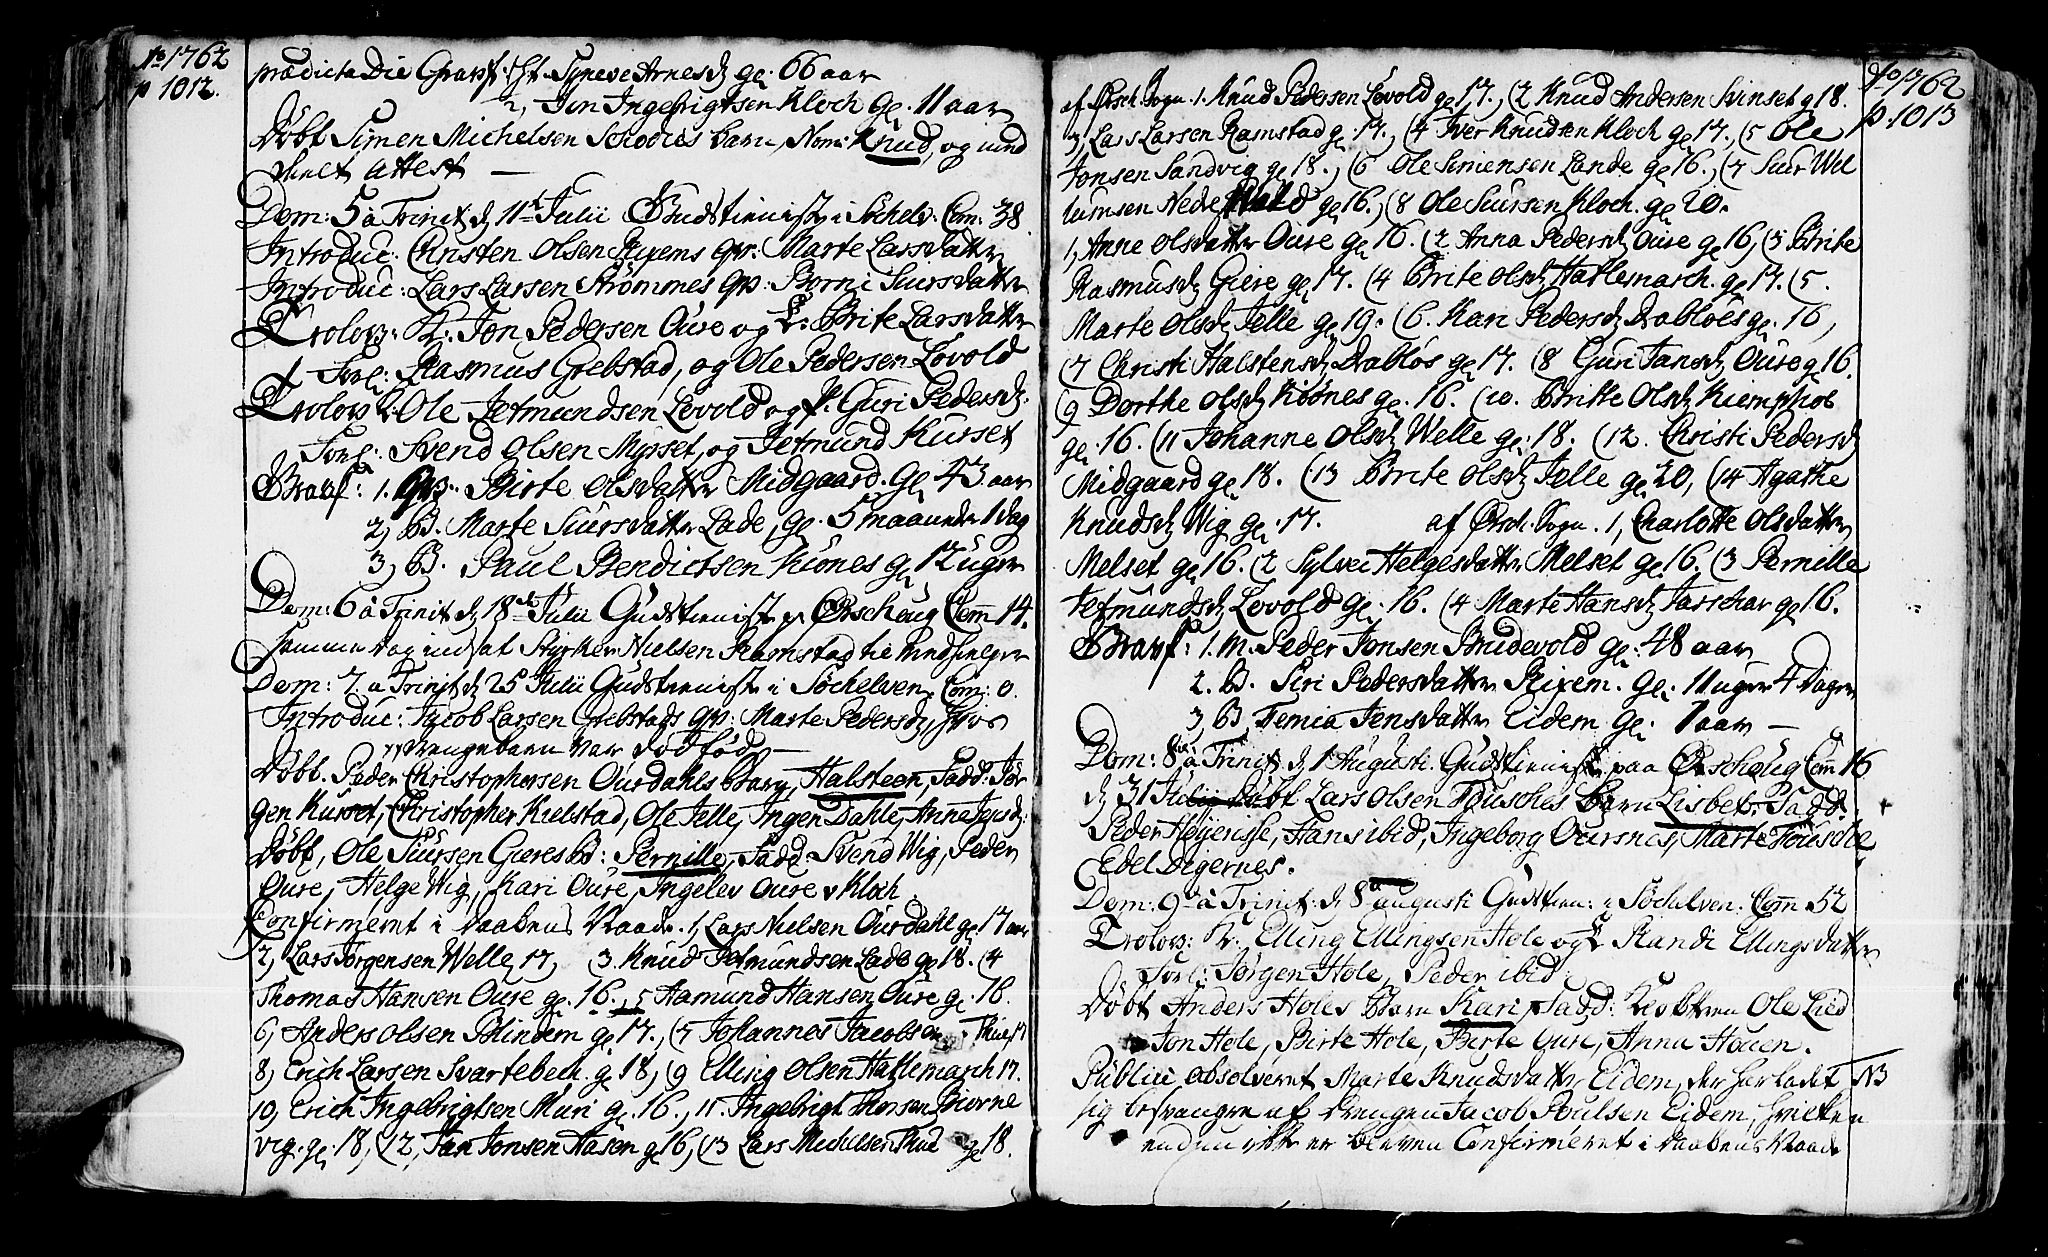 Ao 1762
p 1012.
prædicta Die Grapf: Hr. Syneve Arnesd. ge: 66 aar
2, Jon Ingebrigtsen Kloch ge. 11 aar
Døbt Simen Michelsen barn, Nom: Knud, og
attest —
Dom: 5 a Trinit. d. 11t Julii Gudstienist i Søchelv: Com: 38
Introduc: Christen Olsen Rixems qv: Marte Larsdatter
Introduc: Lars Larsen Strømmes qv: Borni Siursdatter
Trolov: K. Jon Pedersen Oure og P: Brite Larsdatter
Forl: Rasmus Grebstad, og Ole Pedersen Lovold
Trolov K. Ole Jetmundsen Lovold og P. Guri Pedersd.
Forl: Svend Olsen Myrset, og Jetmund Kurset
Gravf: 1. Qv. Birte Olsdatter Midgaard. Ge 43 aar
2, B. Marte Siursdatter Lade, ge. 5 maaneder 1 dag
3, B. Paul Bendictsen Kiønes ge 12 uger
Dom: 6 a Trinit d. 18de Julii Gudstienist p. Ørschoug Com 14.
samme Dag indsat Styrker Nielsen Ramstad til Medhielper
Dom: 7. a Trinit d 25 Julii Gudstienist i Søchelven. Com: 0.
Introduc: Jacob Larsen Grebstads qv: Marte Pedersd, hvis
Drengebarn var dødfød —
Døbt. Peder Christophersen Ourdahls Barn, Halsteen, Fadd: Jør
gen Kurset, Christopher Kielstad, Ole Jelle, Ingen Dahle, Anne
Døbt, Ole Siursen Gieres B: Pernille, Fadd: Svend Wig, Peder
Oure, Helge Wig, Kari Oure, Ingelev Oure v Kloch
Confirmeret i Daabens Naade. 1, Lars Nielsen Ourdahl ge 17 aar
2, Lars Jørgensen Welle 17, 3. Knud Jetmundsen Lade ge 18. (4
Thomas Hansen Oure ge. 16., 5 Aamund Hansen Oure ge. 16.
6, Anders Olsen Blindem ge 17., (7 Johannes Jacobsen 17
8, Erich Larsen Svartebech. ge 18, (9 Elling Olsen Hatlemarch 17.
10, Erich Ingebrigtsen Muri ge. 16., 11. Ingebrigt Thorsen Biørne
vig. ge 18, (12, Jan Jonsen Aasen ge 16, (13 Lars Michelsen ge 18.
Ao 1762
p. 1013
af Ørsch. Sogn. 1. Knud Pedersen Lovold ge 17., (2 Knud Andersen Svinset g 18.
3, Lars Larsen Ramstad ge. 17., (4 Iver Knudsen Kloch ge 17., (5 Ole
Jonsen Sandvig ge 18., (6 Ole Simensen Lande ge 16., (7 Siur Wel
lumsen Nedre ge 16., (8 Ole Siursen Kloch. ge 20.
1, Anne Olsdatter Oure ge 16. (2 Anna Pedersd Oure ge 16, (3 Brite
Rasmusd. Giere ge 17. (4 Brite Olsd Hatlemarch. ge 17. (5.
Marte Olsd Jelle ge 19. (6. Kari Pedersd Dabløes ge. 16,
(7 Christi Halstensd Dabløs ge 17. (8 Guri Jansd, Oure ge 16.
(9 Dorthe Olsd Kiønes ge. 16. (10. Britte Olsd Kiemphol
ge. 16. (11 Johanne Olsd Welle ge. 18. (12. Christi Pedersd
Midgaard ge 18. (13 Brite Olsd Jelle ge 20, (14 Agathe
Knudsd Wig ge. 17. af Ørsch. Sogn. 1, Charlotte Olsdatter
Melset ge 16. (2 Sylvei Helgesdatter Melset ge. 16. (3 Pernille
Jetmundsd Lovold ge. 16. (4 Marte Hansd Jarschar ge 16.
Gravf: 1. M. Peder Jonsen Brudevold ge: 48 aar
2. B. Siri Pedersdatter Rixem. ge. 11 uger 4 Dager
3, B, Temia Jensdatter Eidem ge. 1 aar —
Dom: 8 a Trinit. d. 1 Augusti. Gudstienist paa Ørschoug Com 16
d. 31 Julii Døbt Lars Olsen Fousches Barn Lisbet. Fadd.
Peder Hejerisse, Hans ibid, Ingeborg Oursnes, Marte Fousche
Edel Digernes.
Dom: 9 a Trinit: d 8 augusti Gudstien: i Søchelven. Com 52
Trolov: K. Elling Ellingsen Hole og P Randi Ellingsdatter
Forl: Jørgen Hole, Peder ibid
Døbt Anders Holes Barn Kari, Fadd: Ole Lied
Jon Hole, Birte Hole, Birte Oure, Anne Houen.
Publice absolveret Marte Knudsdatter Eidem, der har ladet NB
sig besvangre af Drengen Jacob Poulsen Eidem, hvilken
endnu ikke er bleven Confirmeret i Daabens Naade